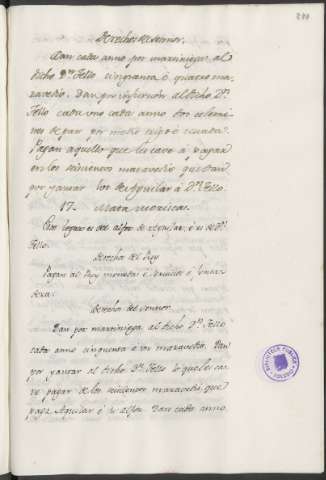 Derechos del Sennor.
Dan cada anno por martiniega al
dicho Dn. Tello cinquenta é quatro ma-
ravedis. Dan por infurcion al dicho Dn.
Tello cada uno cada anno dos celemi-
nes de pan por medio trigo é cevada.
Pagan aquello que les cave á pagar
en los seiscientos maravedis que dan
por yantar los de Aguilar á Dn. Tello.
17. Mata moriscas.
Este logar es del alfoz de Aguilar, é es de Dn.
Tello.
Derechos del Rey
Pagan al Rey moneda é servicios é fonsa-
dera.
Derechos del Sennor.
Dan por martiniega al dicho Dn. Tello
cada anno cinquenta é dos maravedis. Dan
por yantar al dicho Dn. Tello lo que les ca-
ve pagar de los seiscientos maravedis que
paga Aguilar é su alfoz. Dan cada anno
BIBLIOTECA PUBLICA
TOLEDO